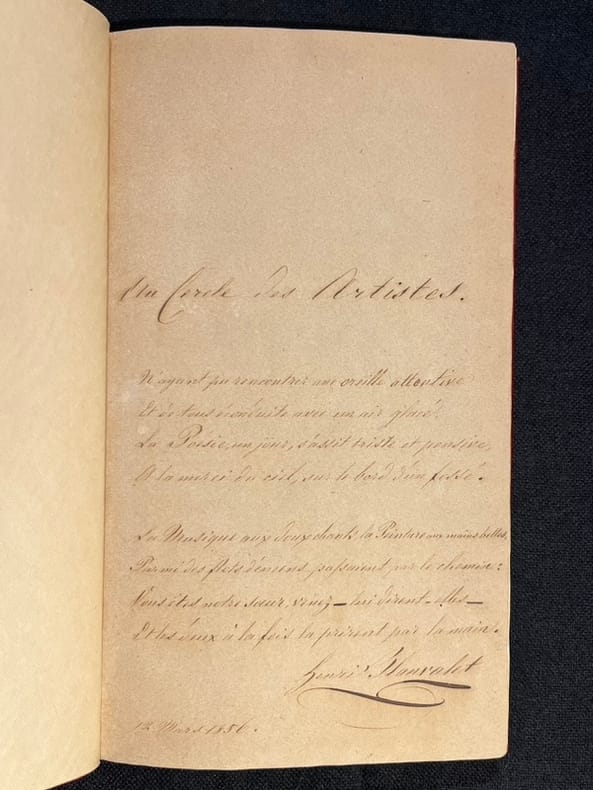 Au Cercle des Artistes.
N'ayant pu rencontrer une oreille attentive
Et de tous éconduite avec un air glacé,
La Poésie, un jour, s'assit triste et pensive,
A la merci du ciel, sur le bord d'un fossé.
La Musique aux doux chants la Peinture aux mains belles,
Parmi des flots d'encens, passaient par le chemin:
Vous êtes notre sœur, venez — lui dirent-elles —
Et les deux à la fois la prirent par la main.
Henri
12 Mars 1856.